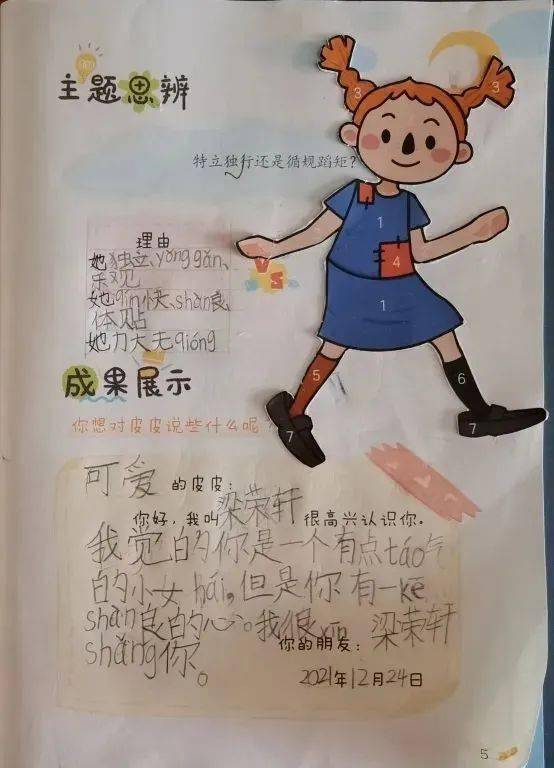 主题思辨
特立独行还是循规蹈矩?
理由
她独立、yǒng gǎn、
乐观
她qín快、shàn良、
体贴
她力大无qióng
VS
3
3
1
4
1
5
6
7
7
成果展示
你想对皮皮说些什么呢?
可爱的皮皮:
你好,我叫梁荣轩很高兴认识你。
我觉的你是一个有点táo气
的小女hái,但是你有一kē
shàn良的心。我很xīn
shǎng你。
你的朋友:梁荣轩
2021年12月24日
5